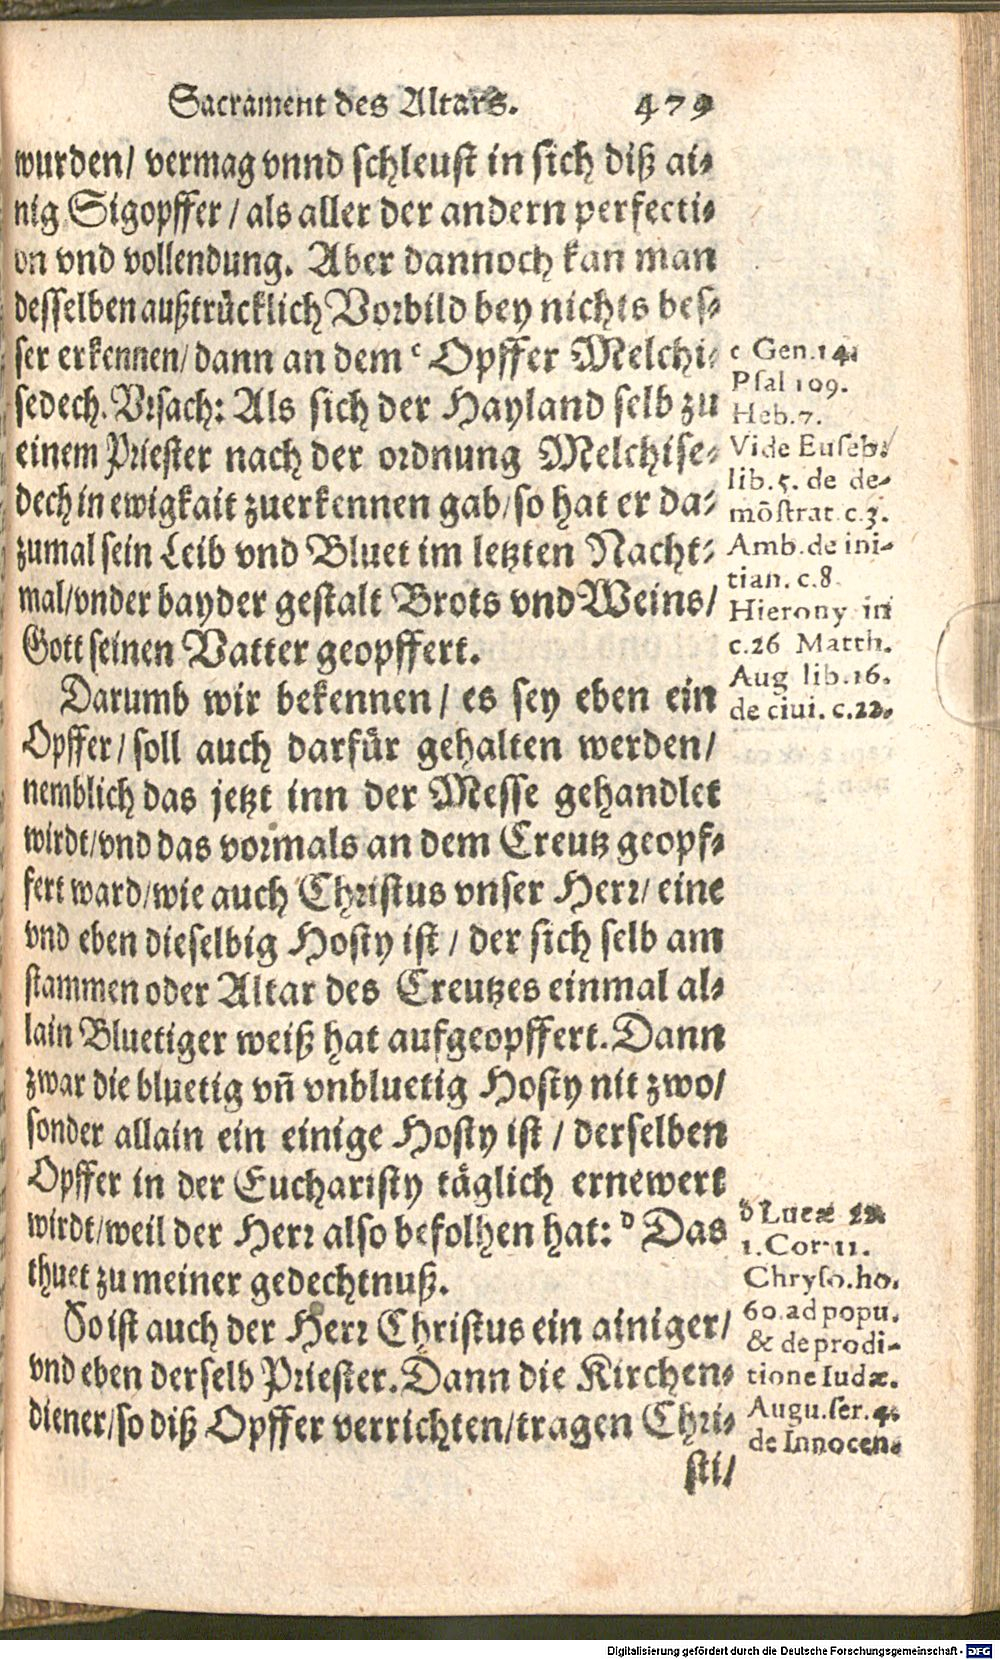 Sacrament des Altars. 479
wurden/ vermag vnnd schleust in sich diß ai-
nig Sigopffer / als aller der andern perfecti-
on vnd vollendung. Aber dannoch kan man
desselben außtrücklich Vorbild bey nichts bes-
ser erkennen/ dann an dem c Opffer Melchi-
sedech. Vrsach: Als sich der Hayland selb zu
einem Priester nach der ordnung Melchise-
dech in ewigkait zuerkennen gab/ so hat er da-
zumal sein Leib vnd Bluet im letzten Nacht-
mal/ vnder bayder gestalt Brots vnd Weins/
Gott seinen Vatter geopffert.
Darumb wir bekennen / es sey eben ein
Opffer / soll auch darfür gehalten werden/
nemblich das jetzt inn der Messe gehandlet
wirdt/ vnd das vormals an dem Creutz geopf-
fert ward/ wie auch Christus vnser Herr/ eine
vnd eben dieselbig Hosty ist / der sich selb am
stammen oder Altar des Creutzes einmal al-
lain Bluetiger weiß hat aufgeopffert. Dann
zwar die bluetig vñ vnbluetig Hosty nit zwo/
sonder allain ein einige Hosty ist / derselben
Opffer in der Eucharisty täglich ernewert
wirdt/ weil der Herr also befolhen hat: d Das
thuet zu meiner gedechtnuß.
So ist auch der Herr Christus ein ainiger/
vnd eben derselb Priester. Dann die Kirchen-
diener/ so diß Opffer verrichten/ tragen Chri-
sti/
c Gen.14.
Psal 109.
Heb.7.
Vide Euseb.
lib.5. de de-
mõstrat. c.3.
Amb. de ini-
tian. c.8.
Hierony in
c.26 Matth.
Aug lib.16.
de ciui. c.22.
d Lucæ 22.
1.Cor. 11.
Chryso.ho.
60. ad popu.
& de prodi-
tione Iudæ.
Augu.ser.4.
de Innocen.
Digitalisierung gefördert durch die Deutsche Forschungsgemeinschaft - DFG